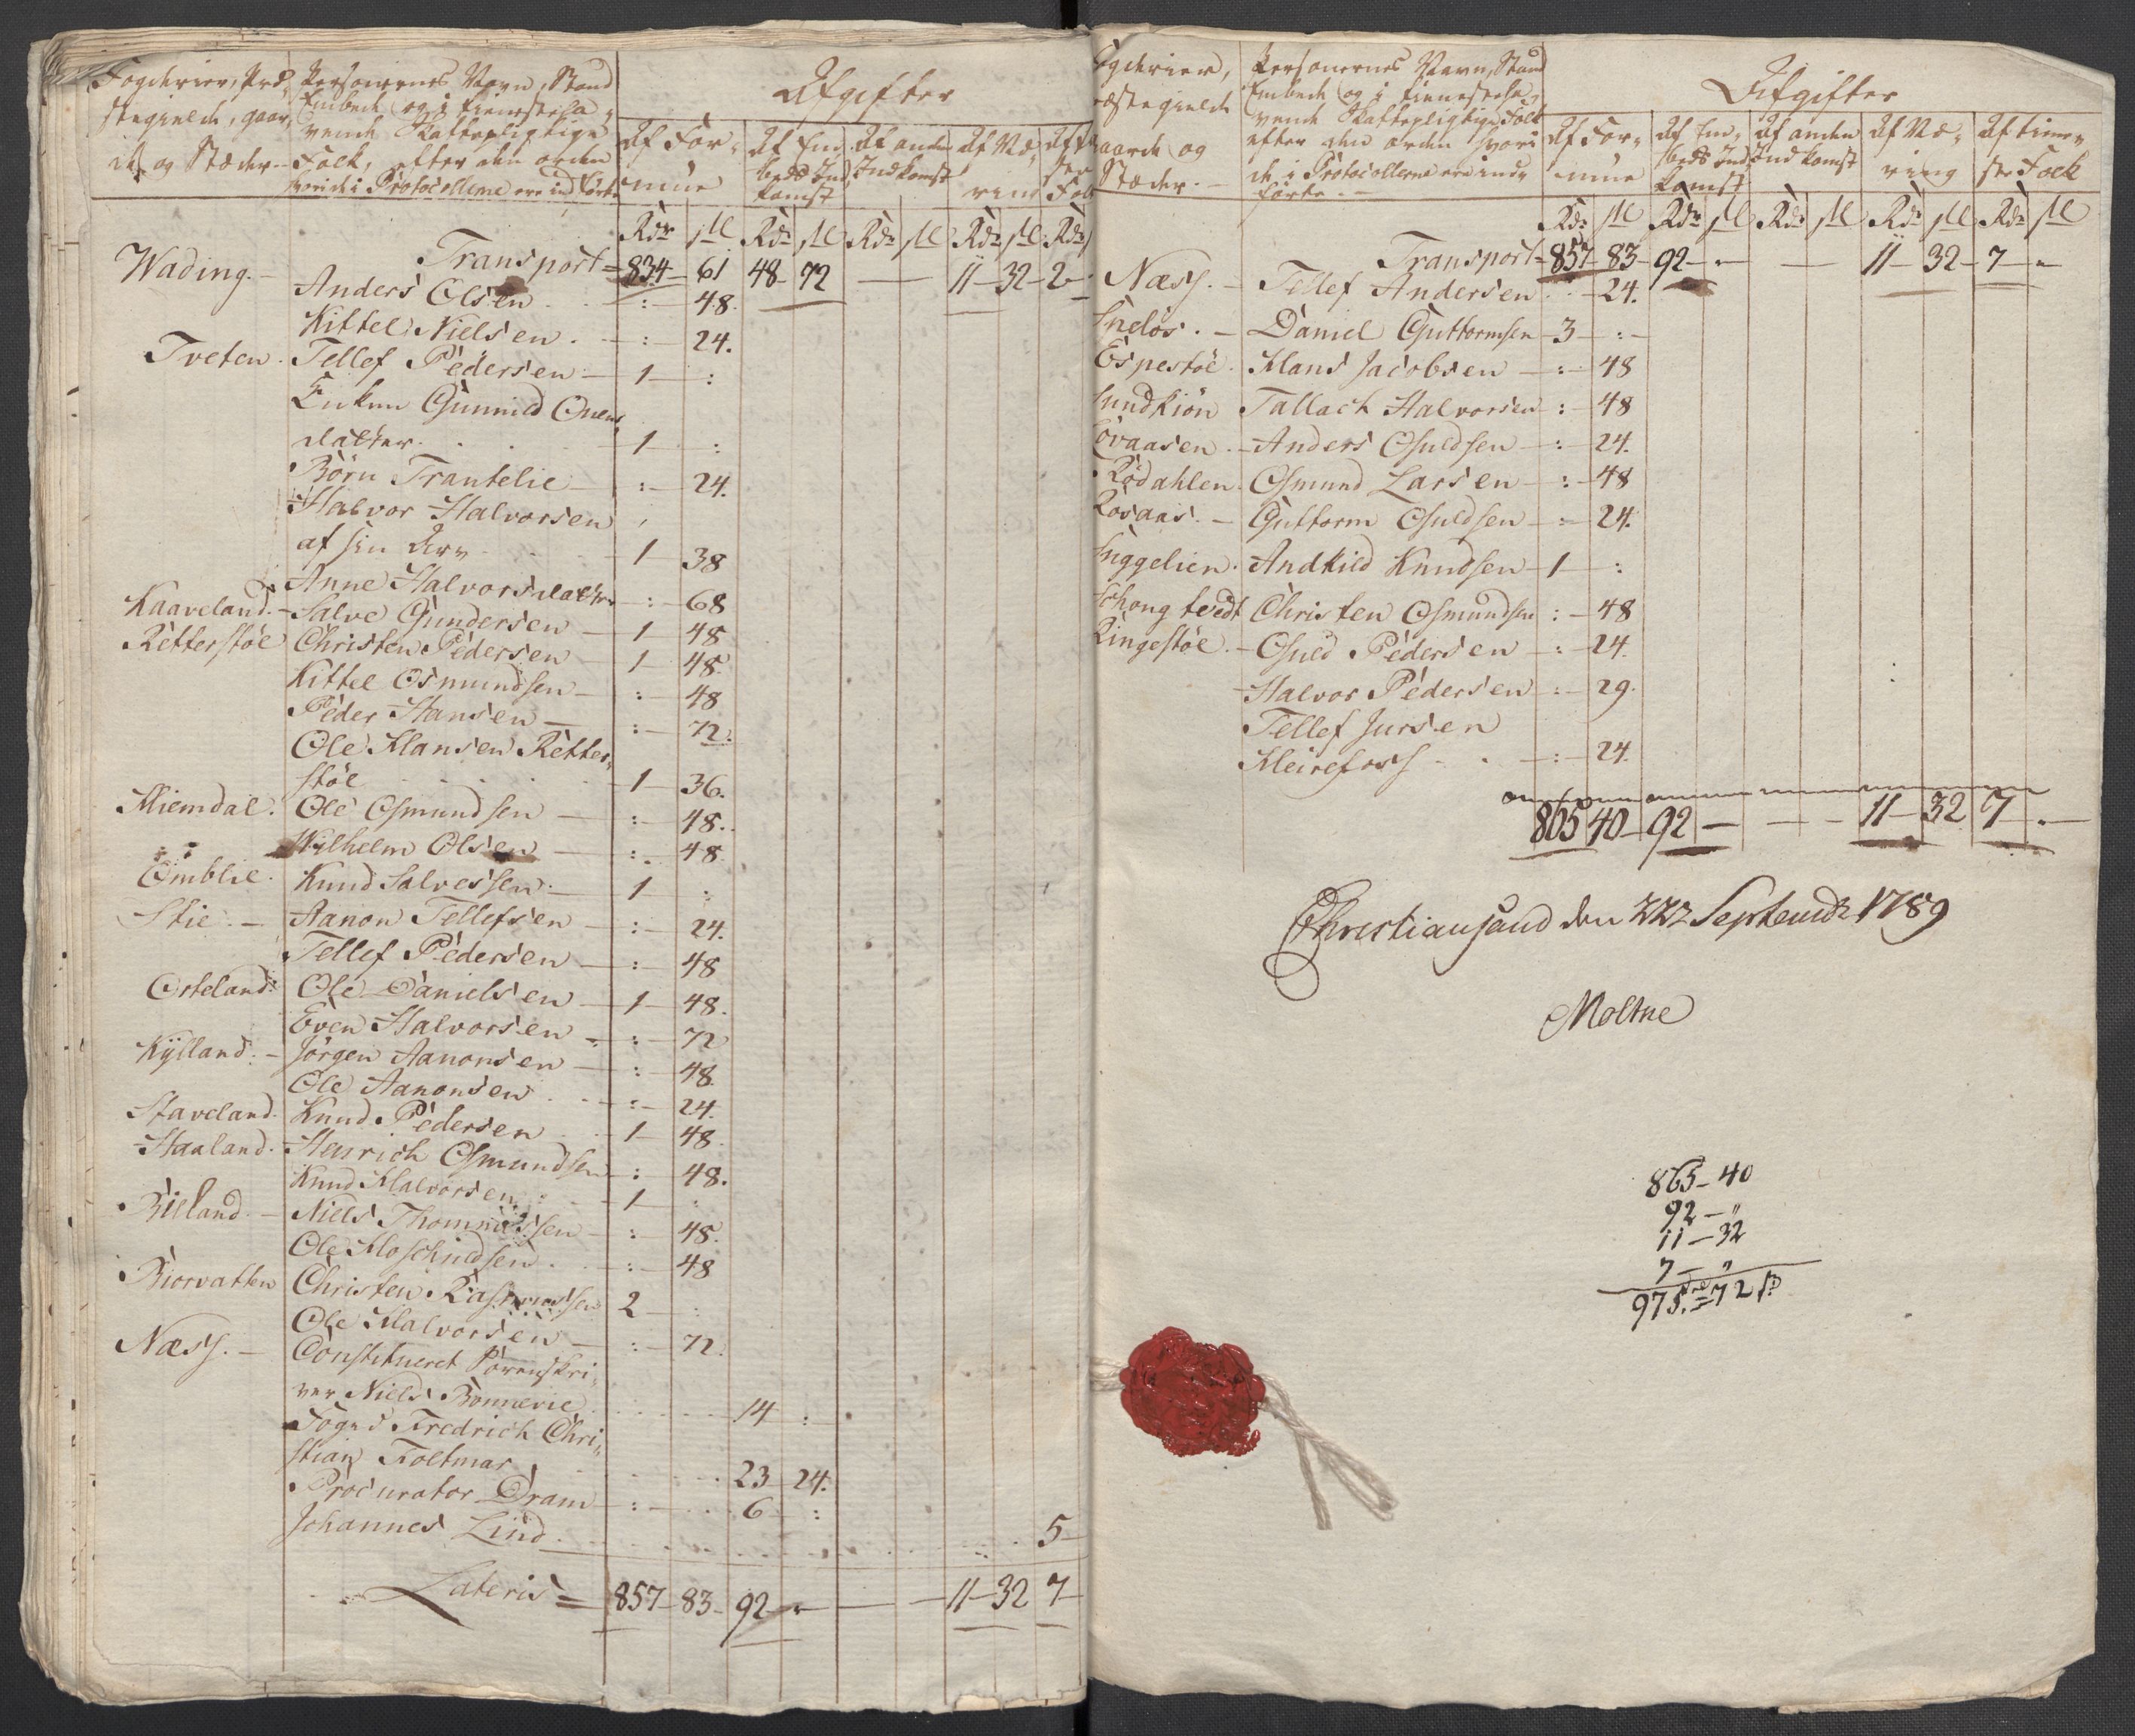 Fogderier, Præ-
stegield, gaar-
de og Stæder
Personernes Navn, Stand
Embede og i tieneste ha-
vende Skattepligtige
Folk, efter den orden
hvori de i Protocollerne ere indførte
Afgifter
Af For-
mue
Af Em-
beds Ind-
komst
Af anden
Indkomst
Af Næ-
ring
Rdr ſk Rdr ſk Rdr ſk Rdr ſk Rdr
Transport 834 - 61 48 - 72 — 11 - 32 - 2
Wading. Anders Olsen : 48
Kittel Nielsen : 24.
Tveten Tellef Pedersen 1 :
Enken Gunnild Onens
datter 1 :
Børn Trantelie : 24.
Halvor Halvorsen
af sin Arv 1 38
Anne Halvorsdatter : 68
Kaaveland. Salve Gundersen 1 48
Retterstøe Christen Pedersen 1 48
Kittel Osmundsen : 48
Peder Hansen : 72.
Ole Hansen Retter-
støe 1 36.
Hiemdal. Ole Osmundsen : 48.
Wilhelm Olsen : 48
Omblie. Knud Salvessen 1 :
Stie. Aanon Tellefsen : 24.
Tellef Pedersen : 48
Osteland Ole Danielsen 1 48.
Even Halvorsen : 72
Kylland. Jørgen Aanonsen : 48
Ole Aanonsen : 24.
Staveland. Knud Pedersen 1 48.
Haaland. Henrich Osmundsen : 48.
Knud Halvorsen 1 :
Bieland. Niels Thommessen : 48.
Ole Hoskiildsen : 48
Biorvatten Christen Rasmussen 2 :
Ole Halvorsen : 72.
Næss. Constitueret Sorenskri-
ver Niels Bonnevie 14 :
Foged Fredrich Chri-
stian Foltmar 23 24.
Procurator Dram 6 :
Johannes Lind 5
Lateris = 857 - 83 - 92 - — 11 - 32 7
Fogderier,
Præstegield
Gaarde og
Stæder.
Personernes Navn, Stand
Embede og i tieneste ha-
vende Skattepligtige Folk
efter den orden hvori
de i Protocollerne ere ind-
førte
Afgifter
Af For-
mue
Af Em-
beds Ind-
komst
Af anden
Indkomst
Af Næ-
ring
Af tiene-
ste Folk
Rdr ſk Rdr ſk Rdr ſk Rdr ſk Rdr ſk
Transport 857 - 83 - 92 - — 11 - 32 - 7 -
Næss. Tellef Andersen 24.
Snelös. Daniel Guttormsen 3 :
Espestøe. Hans Jacobsen : 48
Sundkiön Tallach Halvorsen : 48
Løvaasen. Anders Osuldsen : 24.
Rödahlen. Osmund Larsen : 48
Rosaas. Guttorm Osuldsen : 24.
Snggelien. Andkild Knudsen 1 :
Schongtvedt Christen Osmundsen : 48
Ringestøe. Osuld Pedersen : 24.
Halvor Pedersen : 29.
Tellef Jursen
Kleirefoss : 24.
865 40 - 92 — 11 - 32 7 -
Christiansand den 22 Septembr 1789
Moltke
865 - 40
92 - "
11 - 32
7 - "
975 = 72 ß